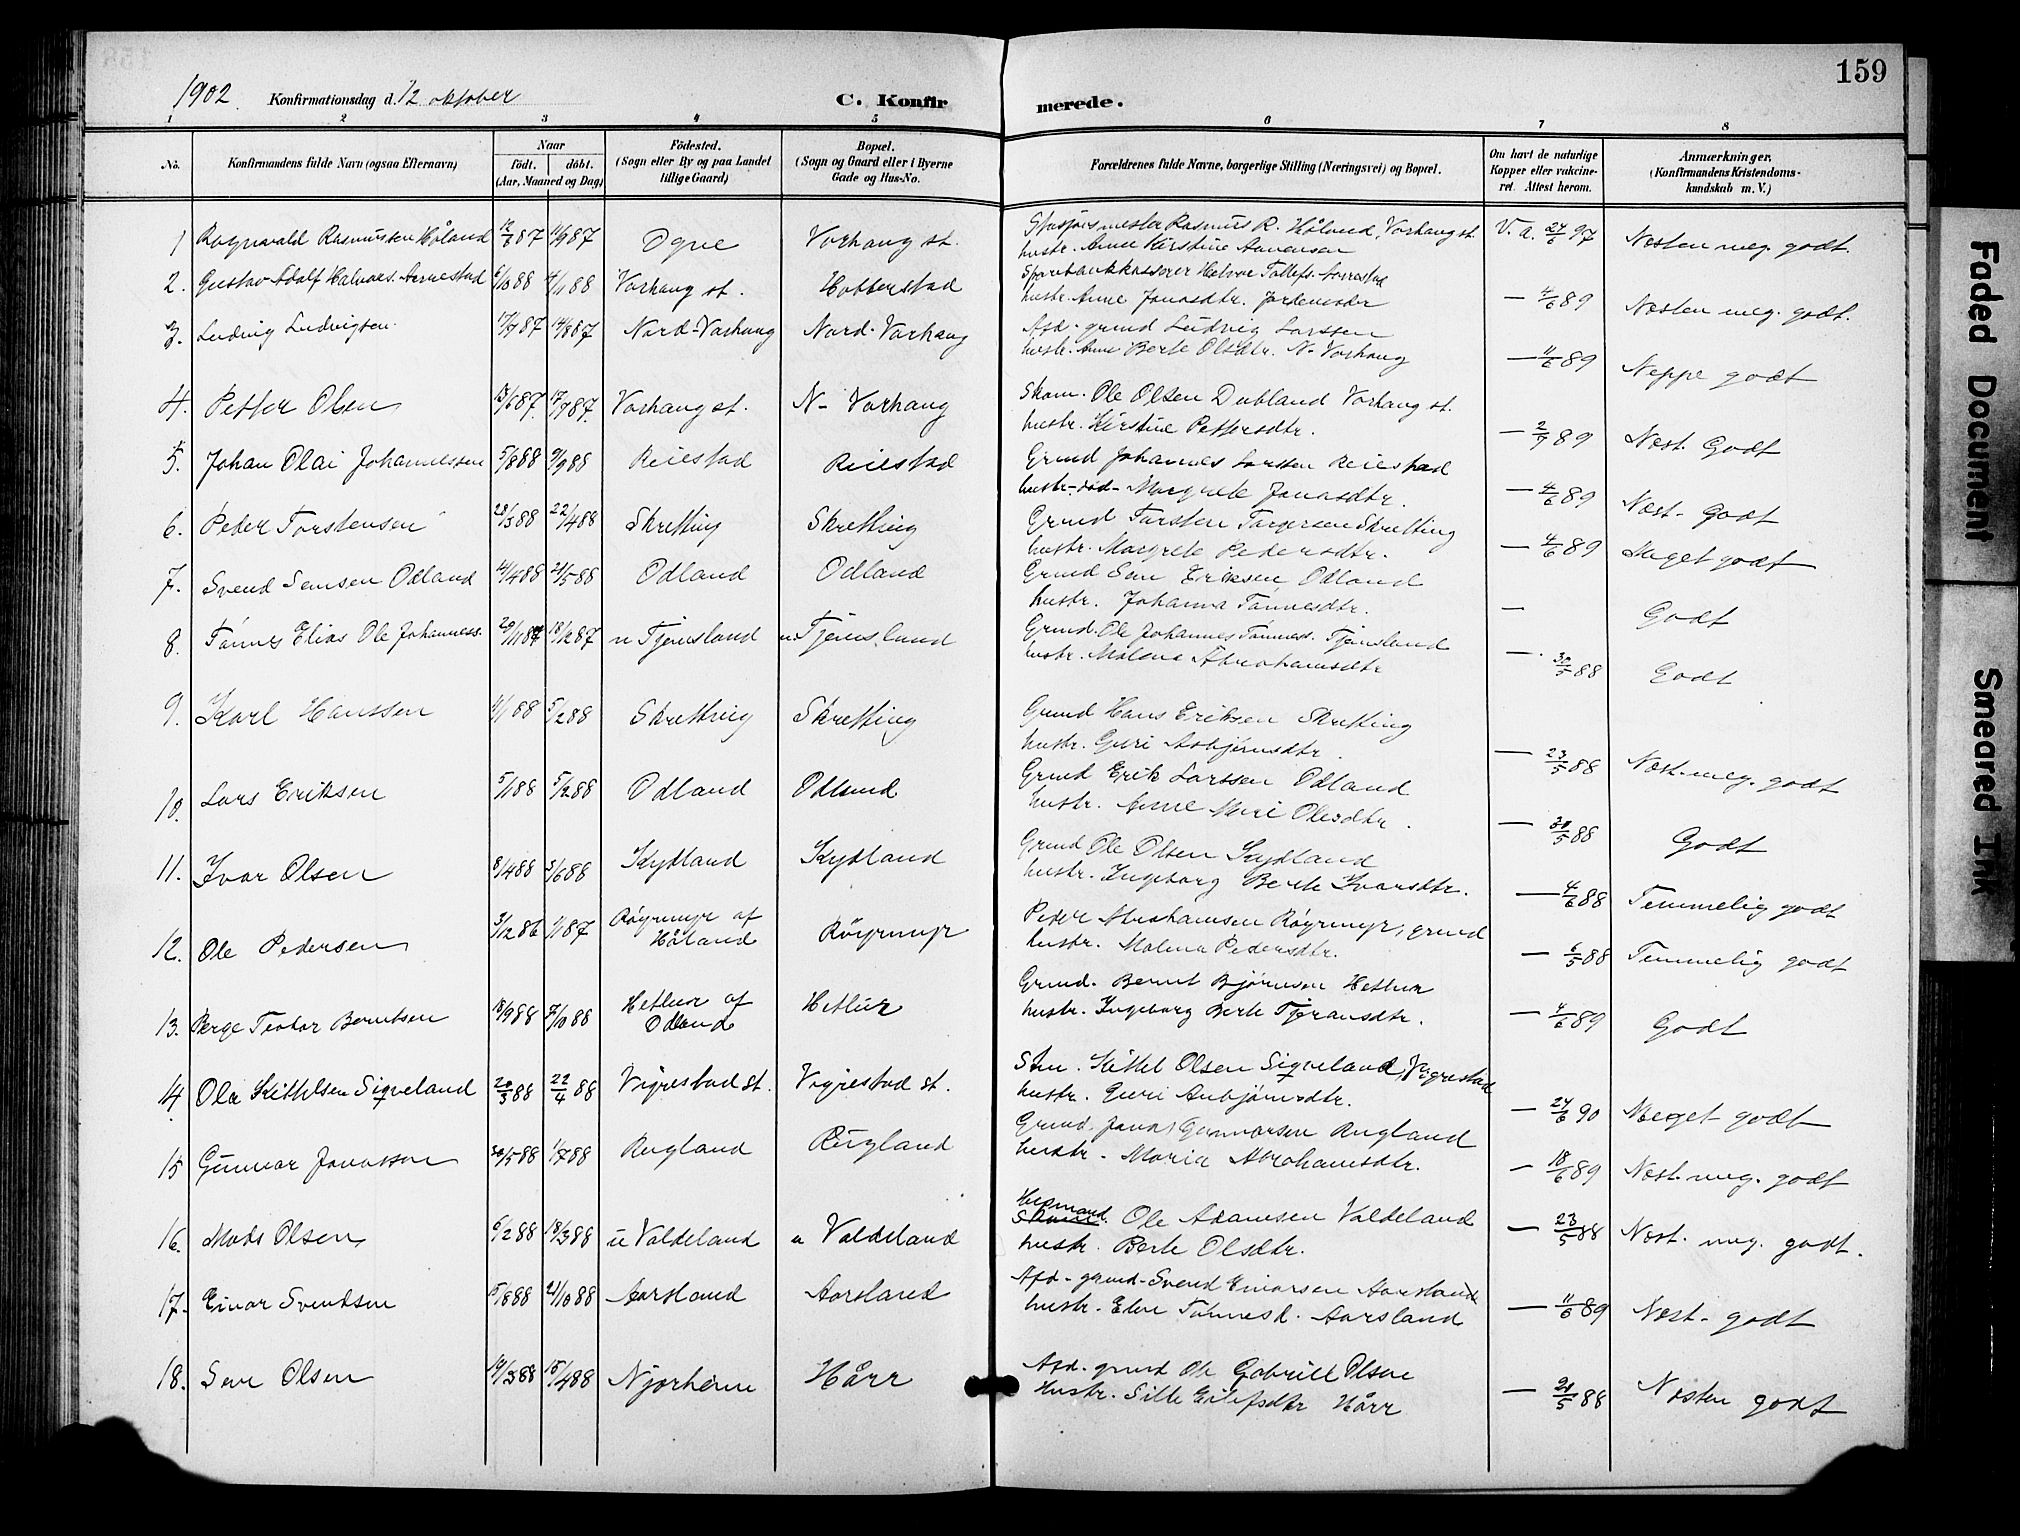 159
1902 Konfirmationsdag d. 12 oktober C. Konfirmerede.
1 2 3 4 5 6 7 8
No. Konfirmandens fulde Navn (ogsaa Efternavn) Naar født. døbt. (Aar, Maaned og Dag) Fødested. (Sogn eller By og paa Landet tillige Gaard) Bopæl. (Sogn og Gaard eller i Byerne Gade og Hus-No. Forældrenes fulde Navne, borgerlige Stilling (Næringsvei) og Bopæl. Om havt de naturlige Kopper eller vakcineret. Attest herom. Anmærkninger. (Konfirmandens Kristendomskundskab m. V.)
1 Ragnvald Rasmussen Håland 87 11/9 87 Ogne Varhaug st. Rasmus R. Håland, Varhaug st. V. a. 24/6 97 Næsten meg. godt.
hustr. Anne Kirstine
2. Gustav Adolf Halvors. Aarrestad 6/10 88 4/11 88 Varhaug st. Hobberstad Sparebankkasserer Halvor Tollefs. Aarrestad
hustr. Anne Jonasdtr. — 4/6 89 Næsten meg. godt.
3. Ludvig Ludvigsen 17/7 87 14/8 87 Nord-Varhaug Nord-Varhaug Afd. grmd Ludvig Larssen
hustr. Anne Berte Olsdtr. N-Varhaug — 11/6 89 Neppe godt
4. Petter Olsen 13/6 87 17/7 87. Varhaug st. N- Varhaug Skom. Ole Olsen Dubland Varhaug st.
hustr. Kirstine Pettersdtr. — 2/7 89 Næst. Godt
5. Johan Olai Johannessen 5/8 88 9/9 88 Reiestad Reiestad Grmd Johannes Larssen Reiestad
hustr.-død- Margrete Jonasdtr. — 4/6 89 Næst- Godt
6. Peder Torstensen 28/3 88 22/4 88 Skretting Skretting Grmd Torsten Torgersen Skretting
hustr. Margrete Pedersdtr. — 4/6 89 Meget godt
7. Svend Semsen Odland 14/4 88 21/5 88 Odland Odland Grmd Sem Eriksen Odland
hustr. Johanna Tønnesdtr. — Godt
8. Tønnes Elias Ole Johanness. 29/11 87 18/12 87 n Tjemsland n. Tjemsland Grmd. Ole Johannes Tønness. Tjemsland
hustr. Malena Abrahamsdtr — 30/5 88 Godt
9. Karl Hanssen 11/1 88 5/2 88 Skretting Skretting Grmd Hans Eriksen Skretting
hustr. Guri Asbjørnsdtr. — 23/5 88 Næst. meg. godt
10. Lars Eriksen 5/1 88 5/2 88 Odland Odland Grmd Erik Larssen Odland
hustr. Anne Mari Olesdtr. — 30/5 88 Godt
11. Ivar Olsen 8/4 88 3/6 88 Kydland Kydland Grmd Ole Olsen Kydland
hustr. Ingeborg Berte Ivarsdtr. — 4/6 88 Temmelig godt
12. Ole Pedersen 3/12 86 1/1 87 Røyrmyr af Håland Røyrmyr Peder Abrahamsen Røyrmyr, grmd
hustr. Malena Pedersdtr. — 6/5 88 Temmelig godt
13. Børge Teodor Berntsen 18/9 88 7/10 88 Hetlur af Odland Hetlur Grmd. Bernt Bjørnsen Hetlur
hustr. Ingeborg Berte Tjøransdtr. — 4/6 89 Godt
14. Ola Kittelsen Sigveland 20/3 88 22/4 88 Vigrestad st. Vigrestad st. Skm. Kittel Olsen Sigveland, Vigrestad
hustr. Guri Aubjørnsdtr. — 24/6 90 Meget godt
15 Gunnar Jonassen 30/5 88 1/7 88 Rugland Rugland Grmd. Jonas Gunnarsen Rugland
hustr. Maria Abrahamsdtr. — 18/6 89 Næst. meg. godt
16. Mads Olsen 6/2 88 18/3 88 u Valdeland u Valdeland Husmand. Ole Adamsen Valdeland
hustr. Berte Olsdtr. — 23/5 88 Næst. meg. godt.
17. Einar Svendsen 15/8 88 21/10 88 Aarsland Aarsland Afd- grmd- Svend Einarsen Aarsland
hustr. Elen Tønnesd. Aarsland — 11/6 89 Næst- godt
18. Sem Olsen 19/3 88 15/4 88 Njærheim Hårr Afd. grmd Ole Gabriel Olsen
Hustr. Sille Eilefsdtr Hårr — 20/5 88 Næsten godt
Faded Document
Smeared Ink